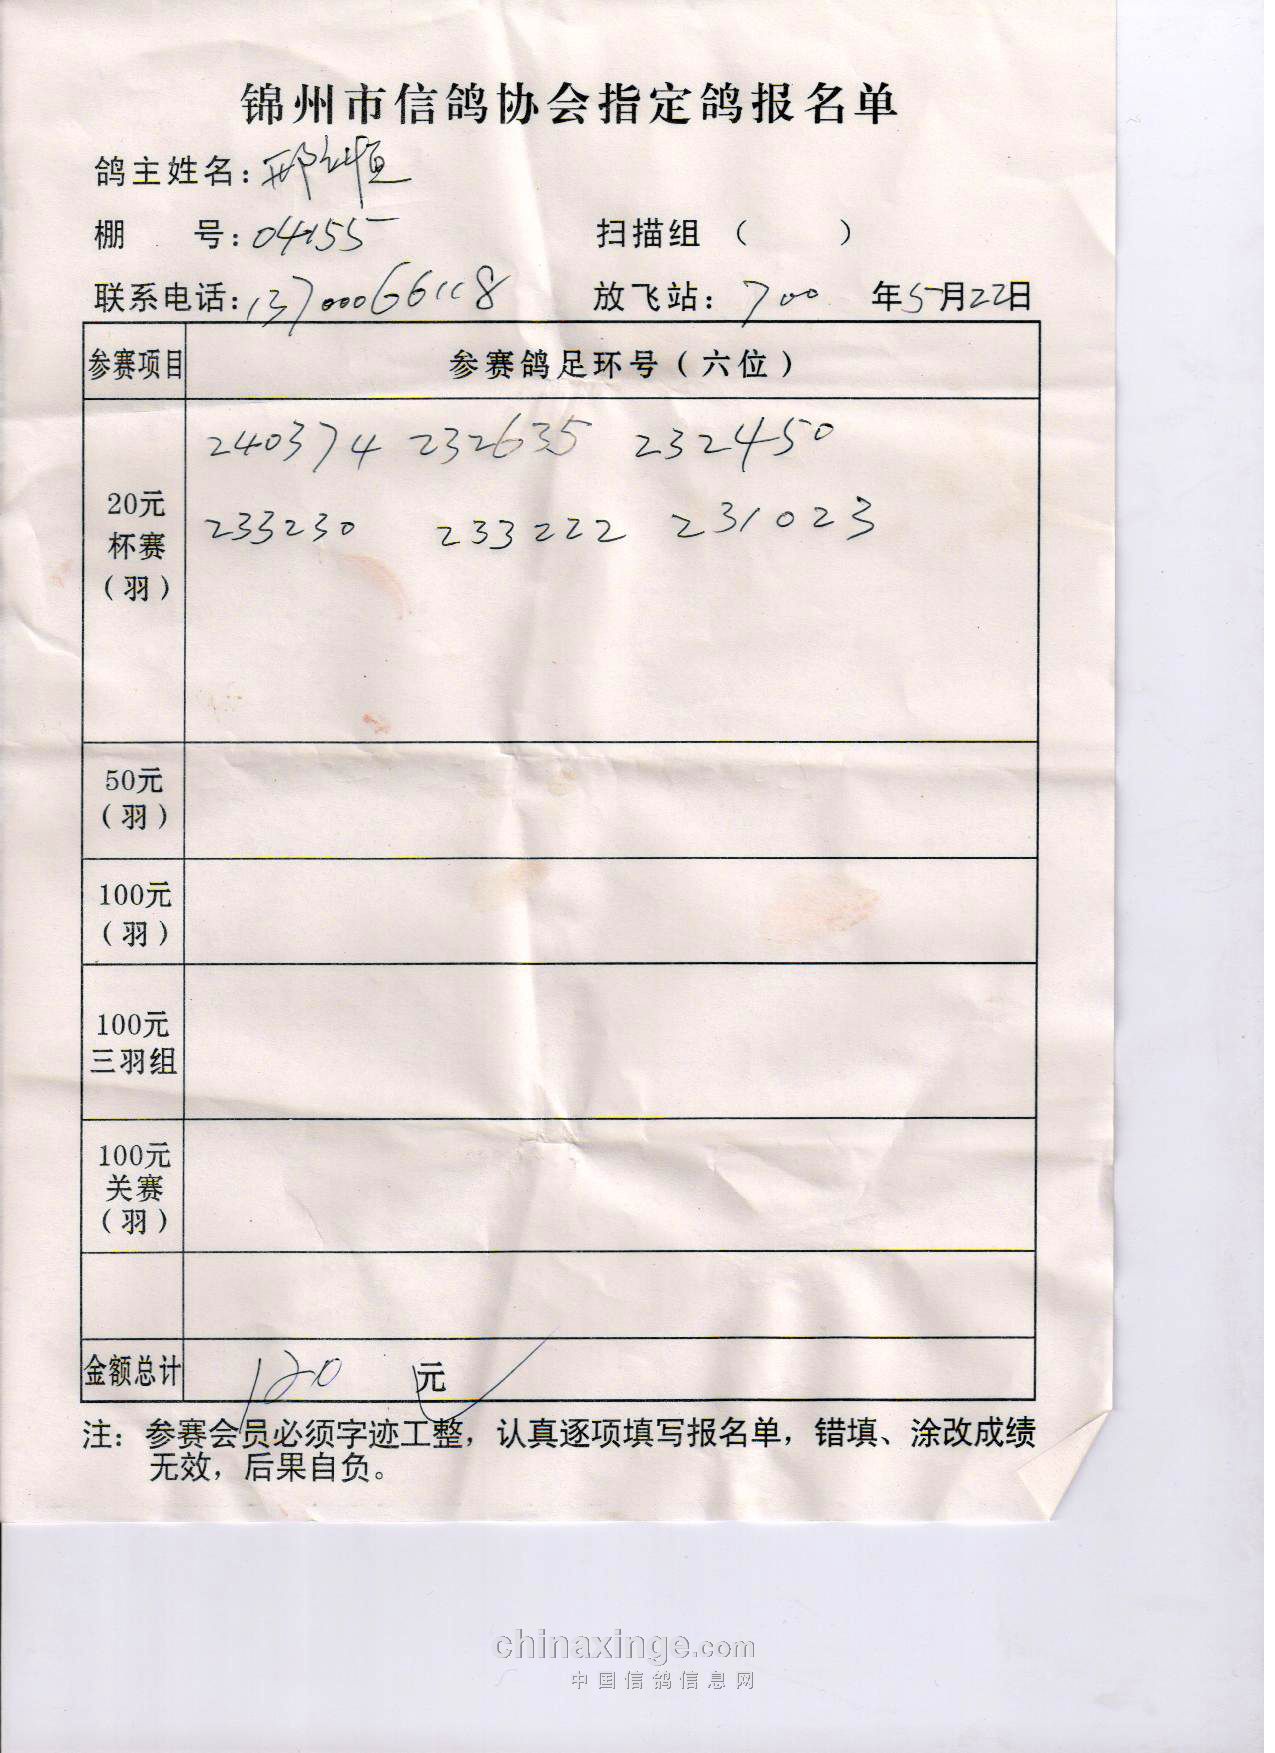 锦州市信鸽协会指定鸽报名单
鸽主姓名：邢
棚 号：04155 扫描组（ ）
联系电话：13700066118 放飞站：700 年5月22日
参赛项目 参赛鸽足环号（六位）
240374 232635 232450
20元
杯赛
（羽）
233230 233222 231023
50元
（羽）
100元
（羽）
100元
三羽组
100元
关赛
（羽）
金额总计 120 元
注：参赛会员必须字迹工整，认真逐项填写报名单，错填、涂改成绩
无效，后果自负。
chinaxinge.com
中国信鸽信息网